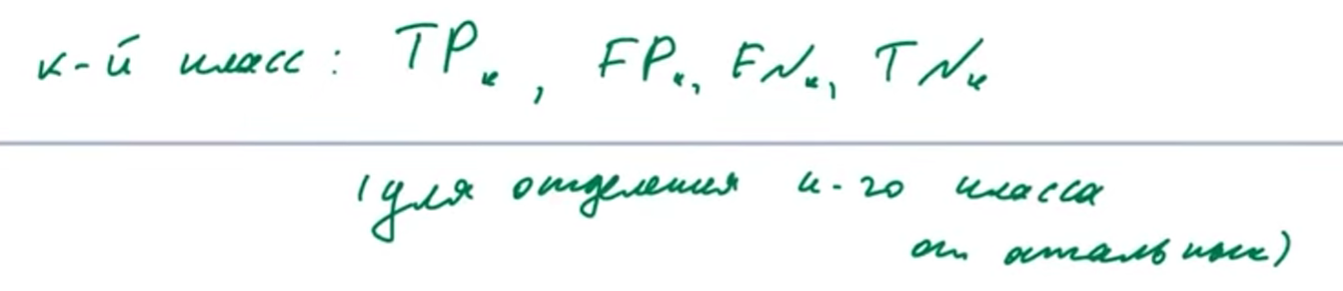 к-й класс: TPₖ, FPₖ, FNₖ, TNₖ
(для отделения к-го класса
от остальных)